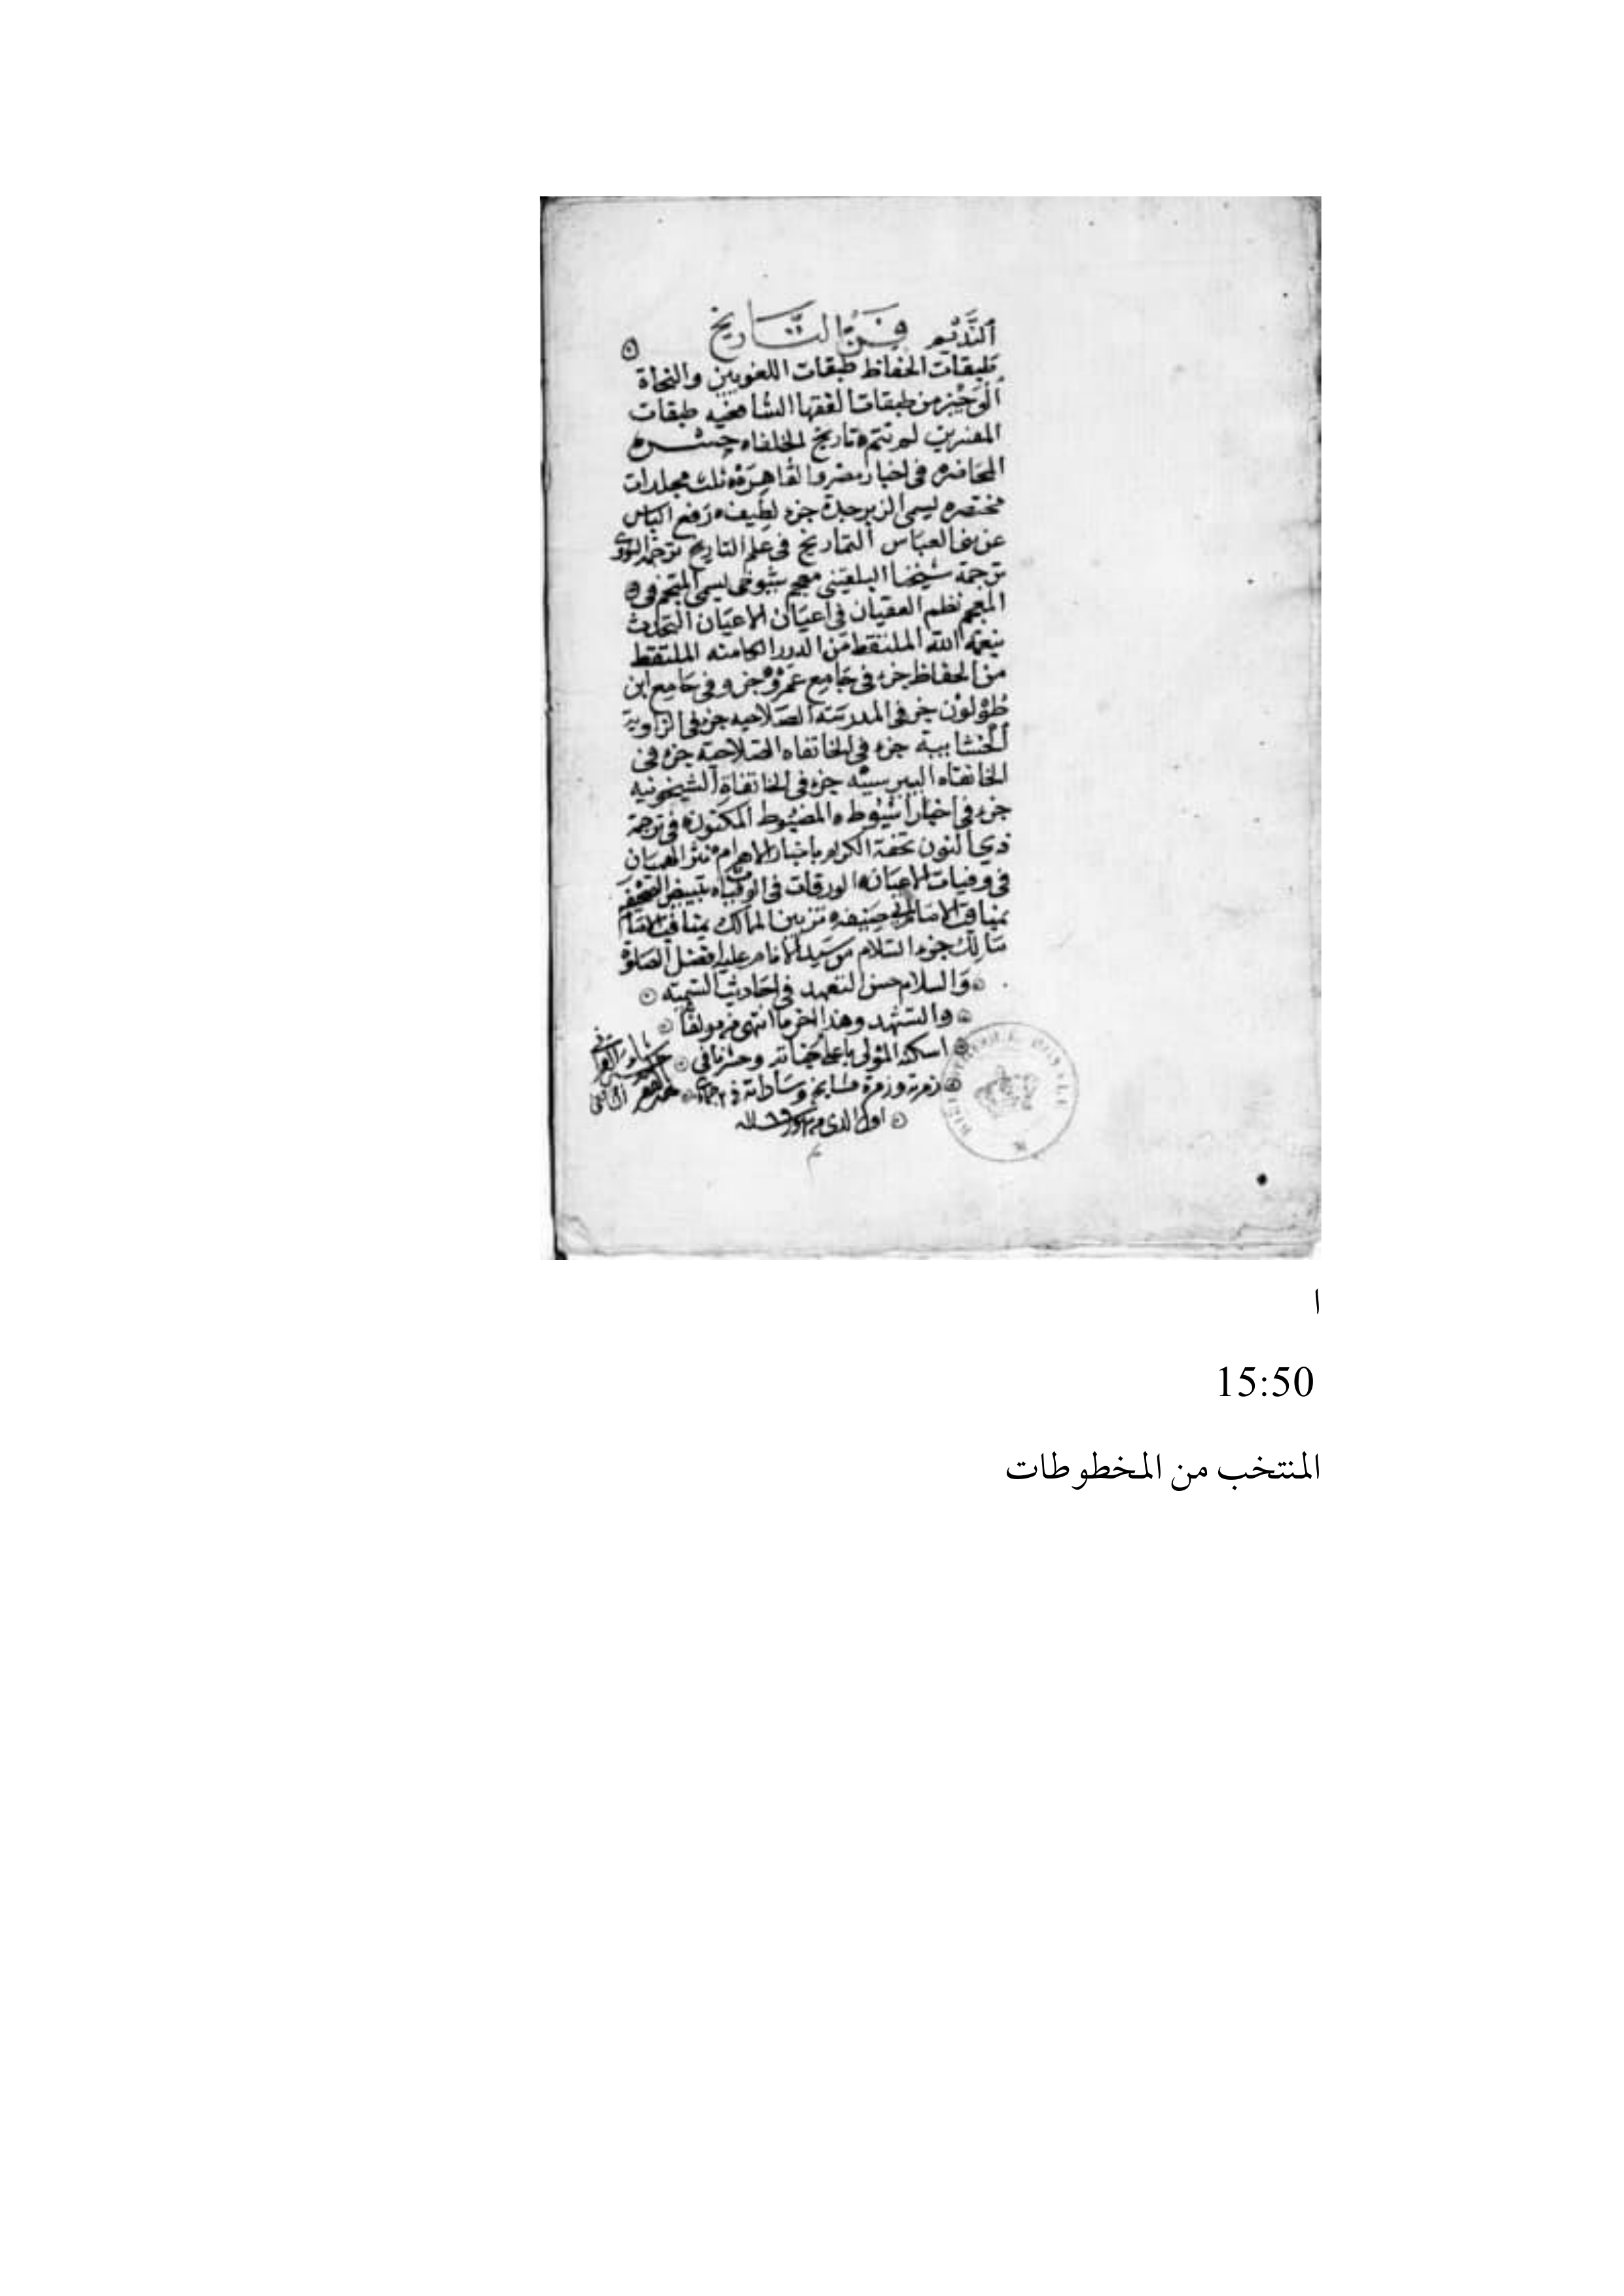 النديم فن التاريخ
طبقات الحفاظ طبقات اللغويين والنحاة
الوجيز من طبقات الفقها الشافعيه طبقات
المفسرين لم تتم تاريخ الخلفاء حسن
المحاضره في اخبار مصر والقاهرة ثلث مجلدات
مختصره يسمى الزبرجدة جزء لطيف رفع الباس
عن بنى العباس الشماريخ في علم التاريخ ترجمة النووي
ترجمة شيخنا البلقيني معجم شيوخى يسمى المنجم في
المعجم نظم العقيان في اعيان الاعيان التحدث
بنعمة الله الملتقط من الدرر الكامنه الملتقط
من الحفاظ جزء في جامع عمرو جزء في جامع ابن
طولون جزء في المدرسة الصلاحيه جزء في الزاوية
الخشابية جزء في الخانقاه الصلاحية جزء في
الخانقاه البيبرسيه جزء في الخانقاة الشيخونيه
جزء في اخبار اسيوط المضبوط المكنون في ترجمة
ذي النون تحفة الكرام باخبار الاهرام نثر الهميان
في وفيات الاعيان الورقات في الوفيات تبييض الصحيفه
بمناقب الامام ابي حنيفه تزيين الممالك بمناقب الامام
مالك جزء السلام من سيد الانام عليه افضل الصلوة
والسلام حسن التعهد في احاديث التسمية
والتشهد وهذا اخر ما انتهى من مولفا
اسكنه المولى باعلى جناته وحشرنا في
زمرته وزمرة مشايخ وساداته في
BIBLIOTHEQUE ROYALE
ا
15:50
المنتخب من المخطوطات